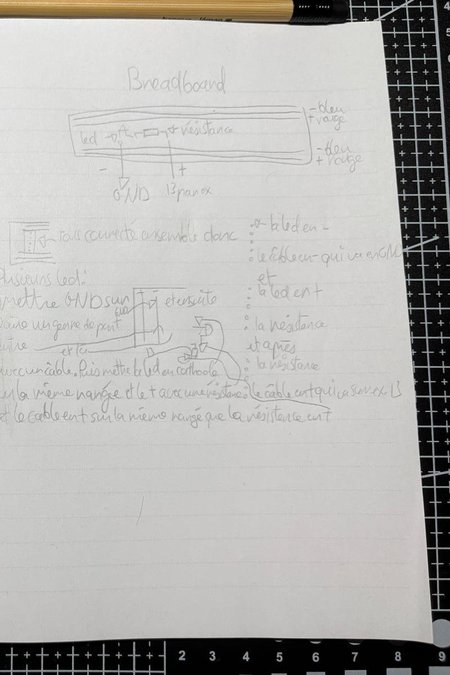 Breadboard
- bleu
+ rouge
led
+ résistance
- bleu
+ rouge
-
+
GND
13 par ex
tous connecté ensemble donc
la led en -
le câble en - qui va en GND
et
la led en +
la résistance
et après
la résistance
le câble en + qui va sur ex 13
Plusieurs led:
mettre GND sur
et ensuite
faire un genre de pont
entre
et la
avec un câble. Puis mettre la led en cathode
sur la même rangée et le + avec une résistance
et le cable en + sur la même rangé que la résistance en +
2 3 4 5 6 7 8 9